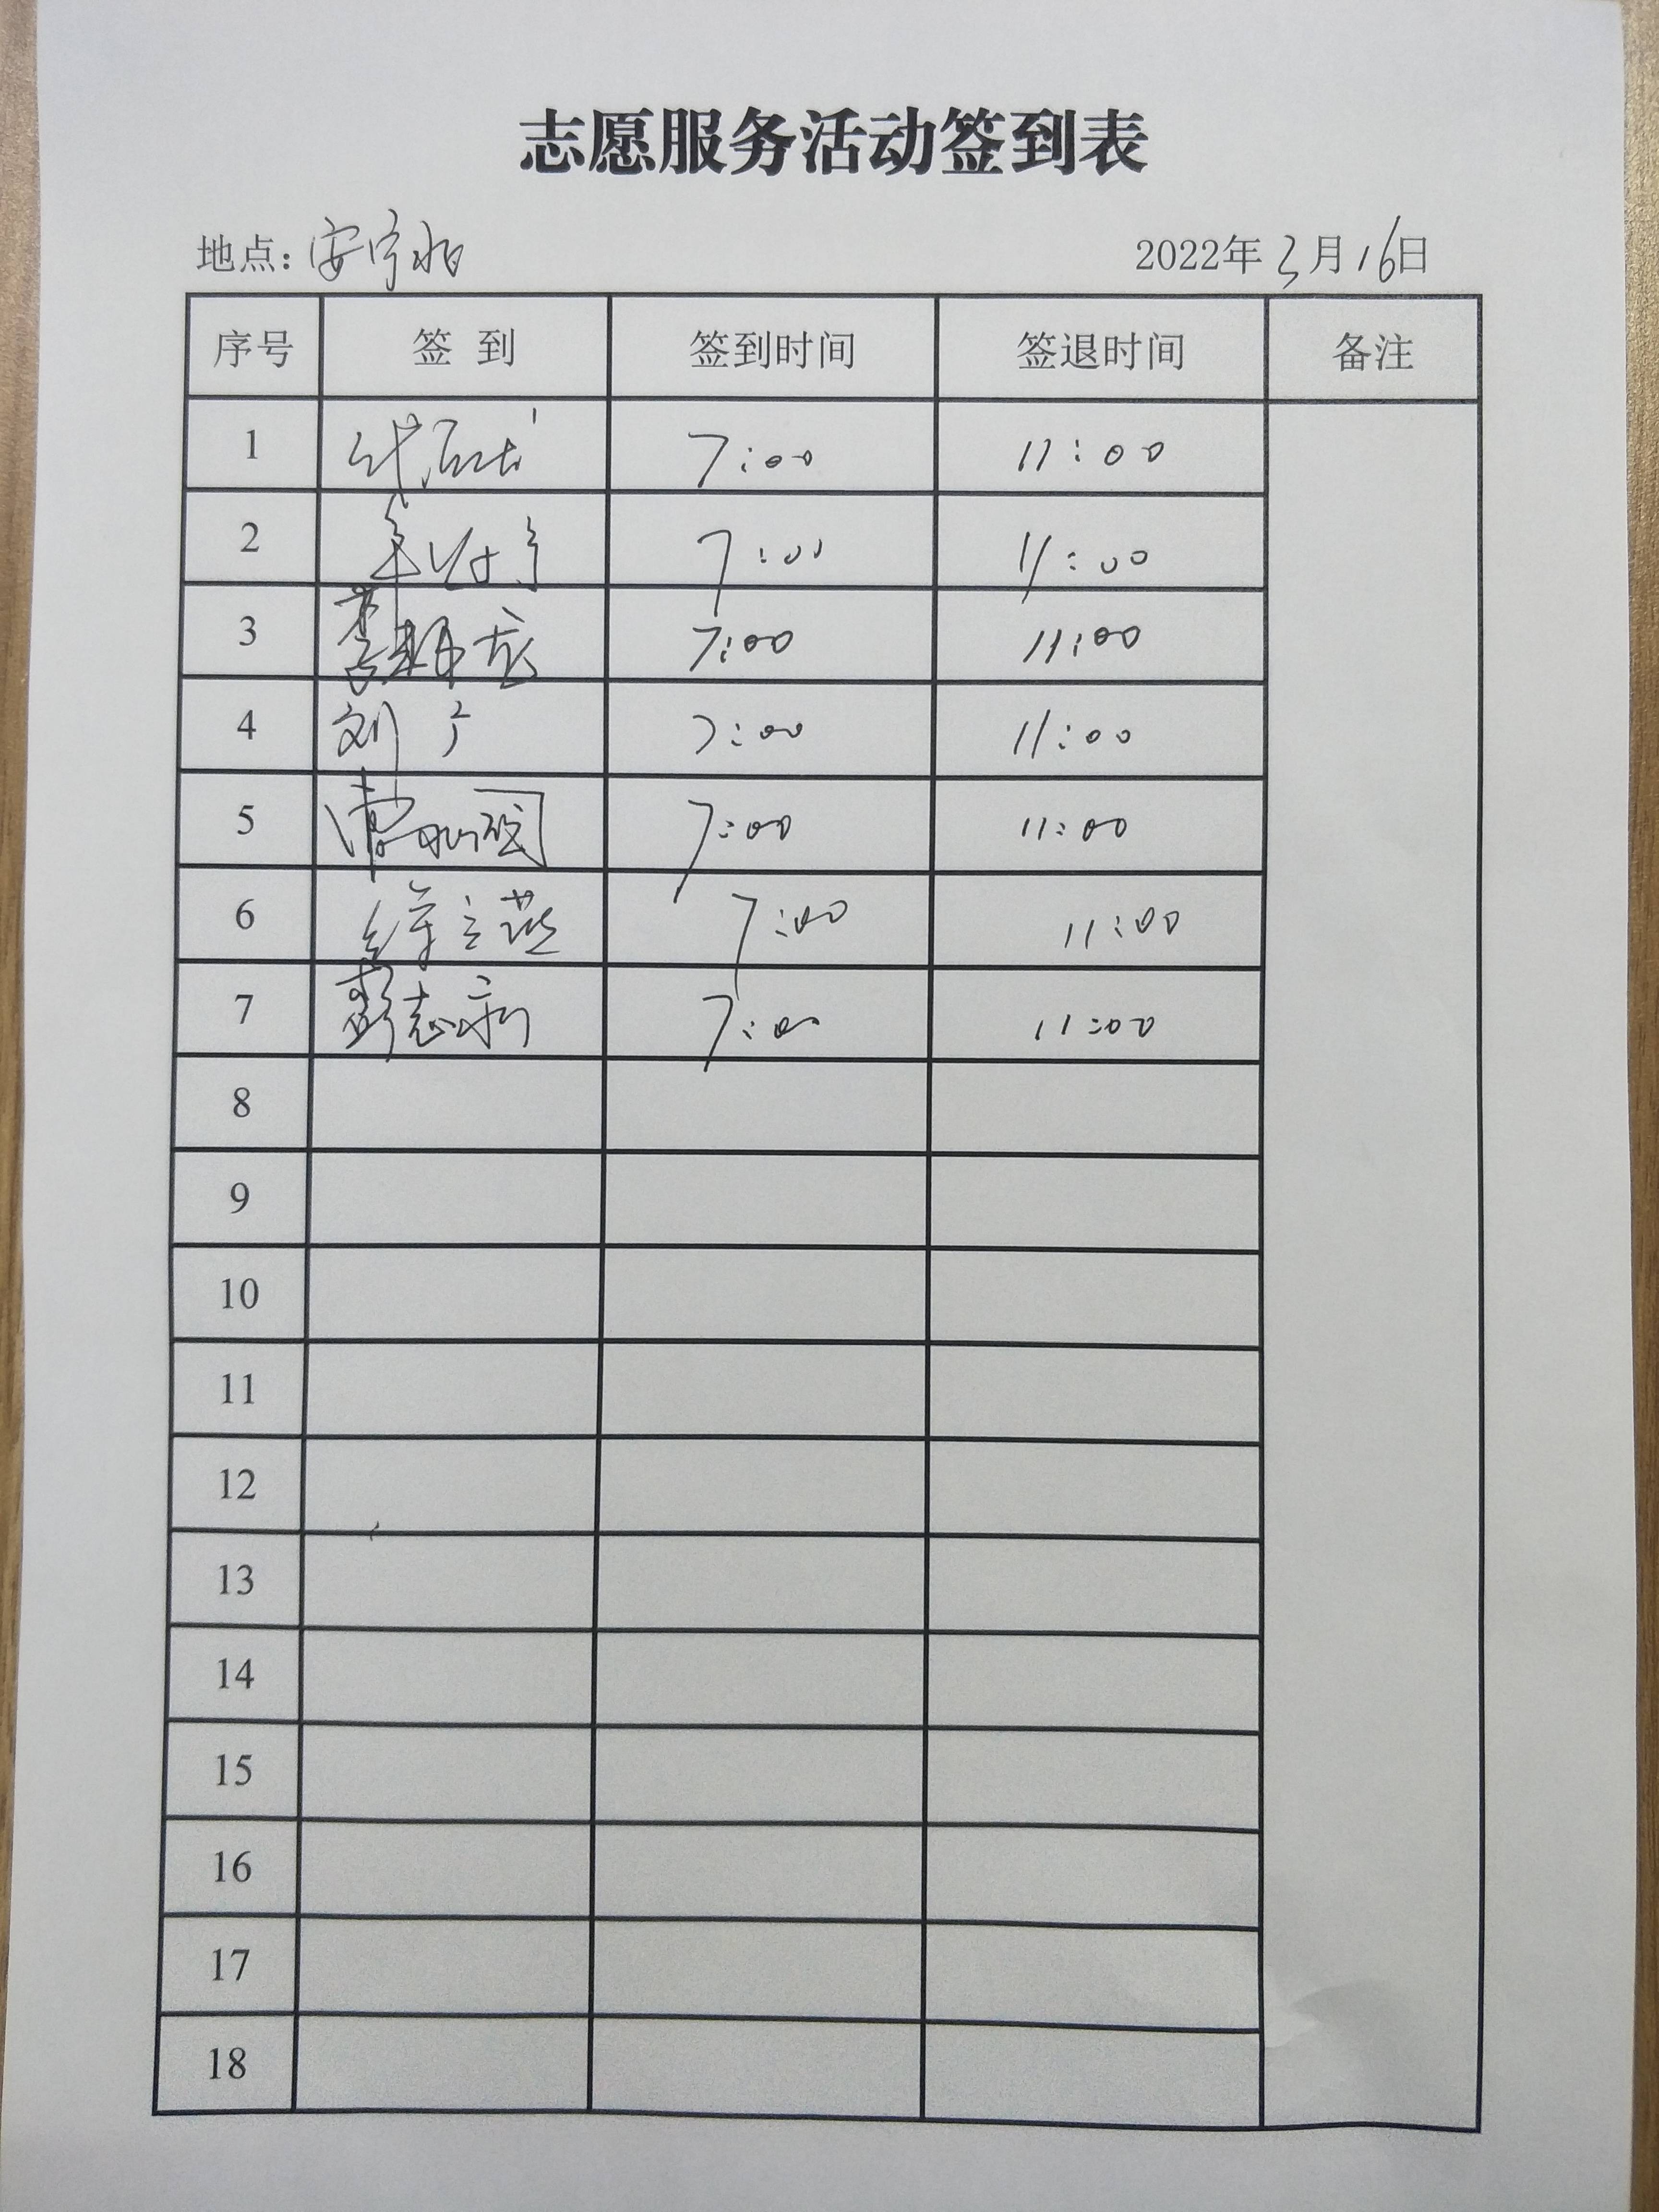 志愿服务活动签到表
地点: 2022年3月16日
序号 签 到 签到时间 签退时间 备注
1 7:00 11:00
2 7:00 11:00
3 7:00 11:00
4 刘 7:00 11:00
5 7:00 11:00
6 7:00 11:00
7 彭志 7:00 11:00
8
9
10
11
12
13
14
15
16
17
18